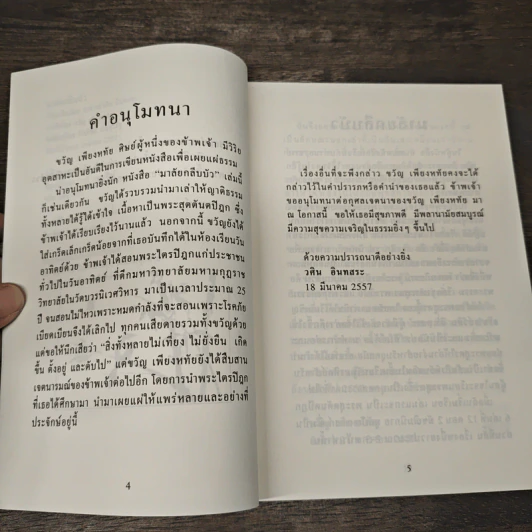 คำอนุโมทนา
ขวัญ เพียงหทัย ศิษย์ผู้หนึ่งของข้าพเจ้า มีวิริย
อุตสาหะเป็นอันดีในการเขียนหนังสือเพื่อเผยแผ่ธรรม
น่าอนุโมทนายิ่งนัก หนังสือ "มาลัยกลีบบัว" เล่มนี้
ก็เช่นเดียวกัน ขวัญได้รวบรวมนำมาเล่าให้ญาติธรรม
ทั้งหลายได้รู้ได้เข้าใจ เนื้อหาเป็นพระสุตตันตปิฎก ซึ่ง
ข้าพเจ้าได้เรียบเรียงไว้นานแล้ว นอกจากนี้ ขวัญยังได้
ใส่เกร็ดเล็กเกร็ดน้อยจากที่เธอบันทึกได้ในห้องเรียนวัน
อาทิตย์ด้วย ข้าพเจ้าได้สอนพระไตรปิฎกแก่ประชาชน
ทั่วไปในวันอาทิตย์ ที่ตึกมหาวิทยาลัยมหามกุฏราช
วิทยาลัยในวัดบวรนิเวศวิหาร มาเป็นเวลาประมาณ 25
ปี จนสอนไม่ไหวเพราะหมดกำลังที่จะสอนเพราะโรคภัย
เบียดเบียนจึงได้เลิกไป ทุกคนเสียดายรวมทั้งขวัญด้วย
แต่ขอให้นึกเสียว่า "สิ่งทั้งหลายไม่เที่ยง ไม่ยั่งยืน เกิด
ขึ้น ตั้งอยู่ และดับไป" แต่ขวัญ เพียงหทัยยังได้สืบสาน
เจตนารมณ์ของข้าพเจ้าต่อไปอีก โดยการนำพระไตรปิฎก
ที่เธอได้ศึกษามา นำมาเผยแผ่ให้แพร่หลายและอย่างที่
ประจักษ์อยู่นี้
4
เรื่องอื่นที่จะพึงกล่าว ขวัญ เพียงหทัยคงจะได้
กล่าวไว้ในคำปรารภหรือคำนำของเธอแล้ว ข้าพเจ้า
ขออนุโมทนาต่อกุศลเจตนาของขวัญ เพียงหทัย มา
ณ โอกาสนี้ ขอให้เธอมีสุขภาพดี มีพลานามัยสมบูรณ์
มีความสุขความเจริญในธรรมยิ่งๆ ขึ้นไป
ด้วยความปรารถนาดีอย่างยิ่ง
วศิน อินทสระ
18 มีนาคม 2557
5